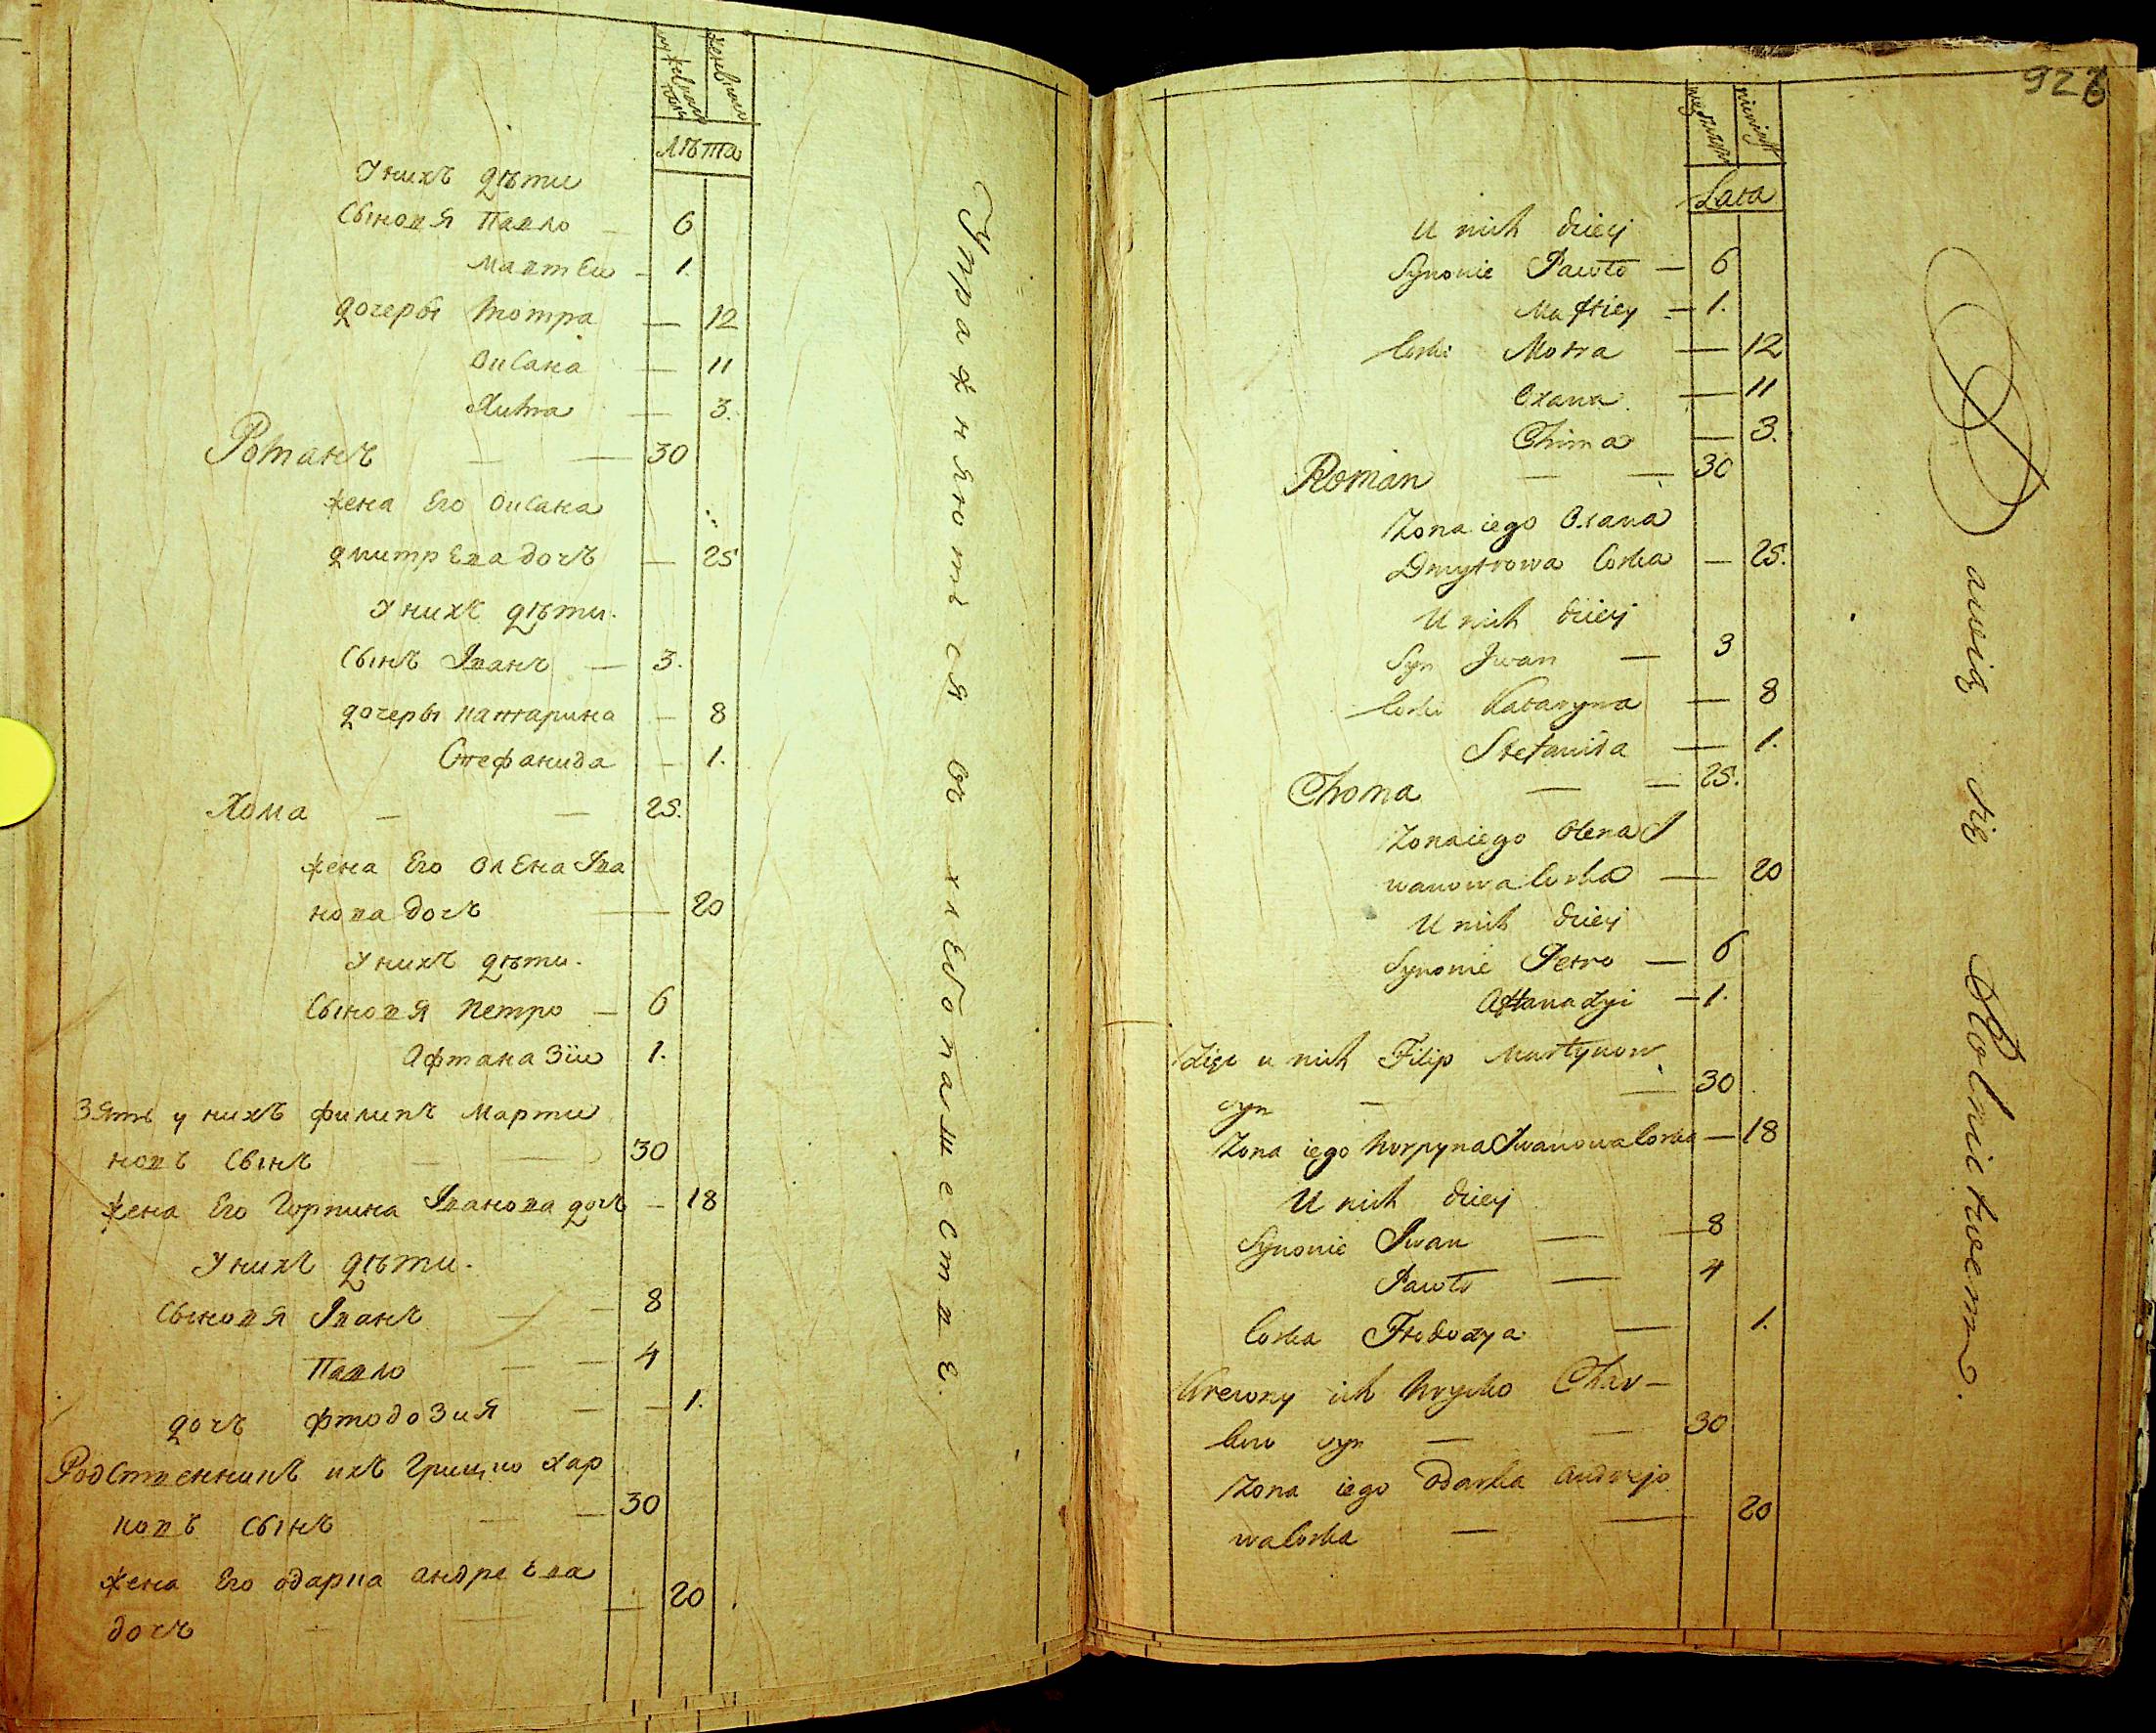 Лѣта
У нихъ дѣти
Сыновя Павло — 6
Мавтеи — 1.
дочеры Мотра — 12
Оксана — 11
Хима — 3.
Романъ — — 30
жена Его Оксана
дмитрева дочъ — 25
У нихъ дѣти.
Сынъ Іванъ — 3.
дочеры катарина — 8
Стефанида — 1.
Хома — — 25.
жена Его Олена Іва
нова дочъ — 20
У нихъ дѣти.
Сыновя Петро — 6
Афтаназіи 1.
Зять у нихъ филипъ Марти
новъ Сынъ — — 30
жена Его Горпина Іванова дочъ — 18
У нихъ дѣти.
Сыновя Іванъ — — 8
Павло — — 4
дочъ фтодозия — — 1.
Родственникъ ихъ Грицко Хар
ковъ Сынъ — — 30
жена Его одарка андреева
дочъ — 20
Упражняются въ хлебопашестве.
926
Lata
U nich dzieci
Synowie Pawło — 6
Maftiey — 1.
Corki Motra — 12
Oxana — 11
Chima — 3.
Roman — — 30
Zona iego Oxana
Dmytrowa Corka — 25.
U nich dzieci
Syn Jwan — 3
Corki Kataryna — 8
Stefanida — 1.
Choma — — 25.
Zona iego Olena J
wanowa Corka — 20
U nich dzieci
Synowie Petro — 6
Aftanazyi — 1.
Zięc u nich Filip Martynow
syn — — 30
Zona iego Horpyna Jwanowa Corka — 18
U nich dzieci
Synowie Jwan — — 8
Pawło — 4
Corka Ftodozya — 1.
Krewny ich Hrycko Char-
kow syn — — 30
Zona iego Odarka Andrejo
wa Corka — — 20
Bawią się Rolnictwem.